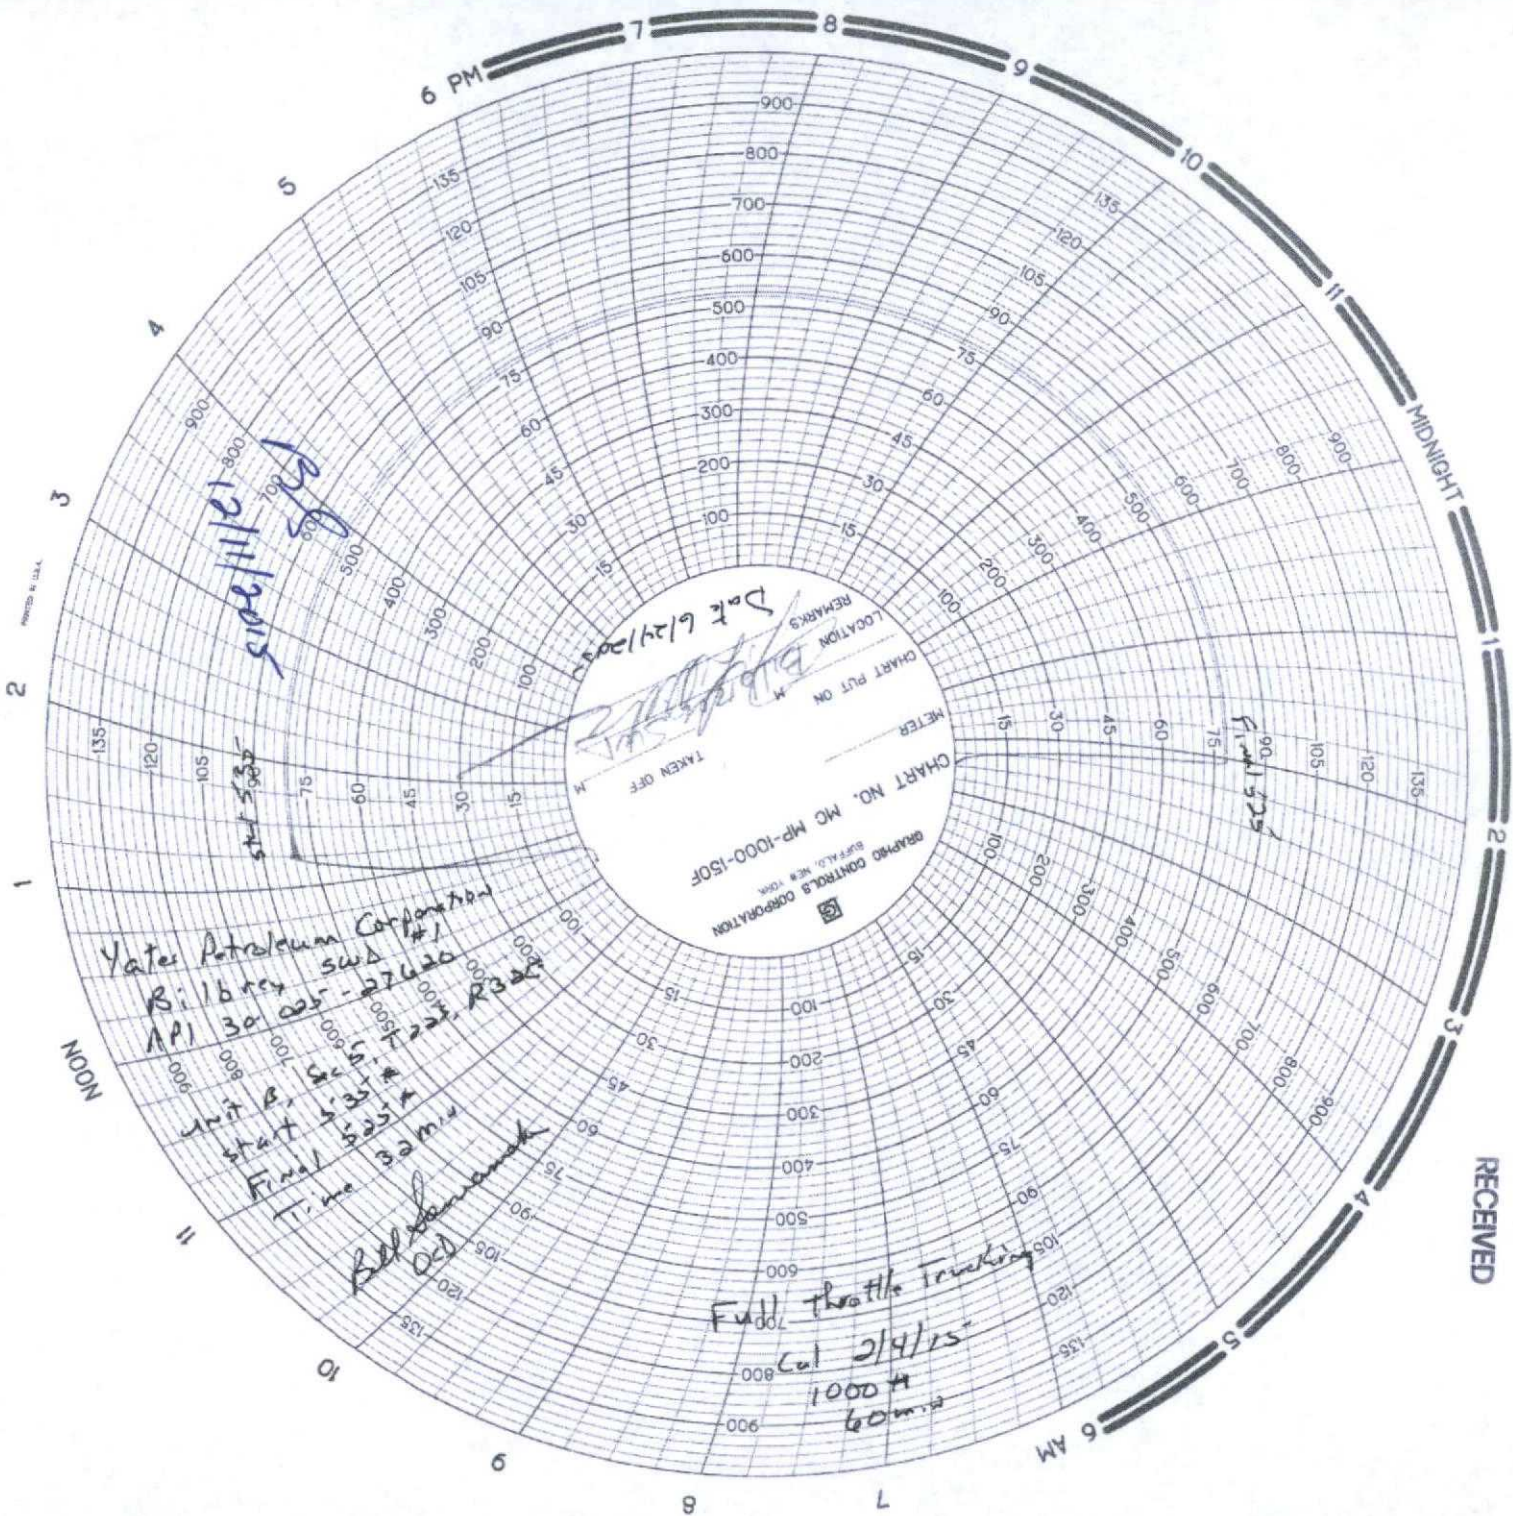 6 PM
7
8
9
10
11
MIDNIGHT
1
2
3
4
5
6 AM
7
8
9
10
11
NOON
1
2
3
4
5
RECEIVED
PRINTED IN U.S.A.
900
800
700
600
500
400
300
200
100
135
120
105
90
75
60
45
30
15
GRAPHIC CONTROLS CORPORATION
BUFFALO, NEW YORK
CHART NO. MC MP-1000-150F
METER
CHART PUT ON
TAKEN OFF
M
M
LOCATION
REMARKS
Date 6/24/2015
12/11/2015
Start 535
Final 525
Yates Petroleum Corporation
Bilbrey SWD #1
API 30-025-27620
Unit B, Sec 5, T22S, R32E
Start 535 #
Final 525 #
Time 32 min
Bill
OCD
Full Throttle Trucking
Cal 2/4/15
1000 #
60 min